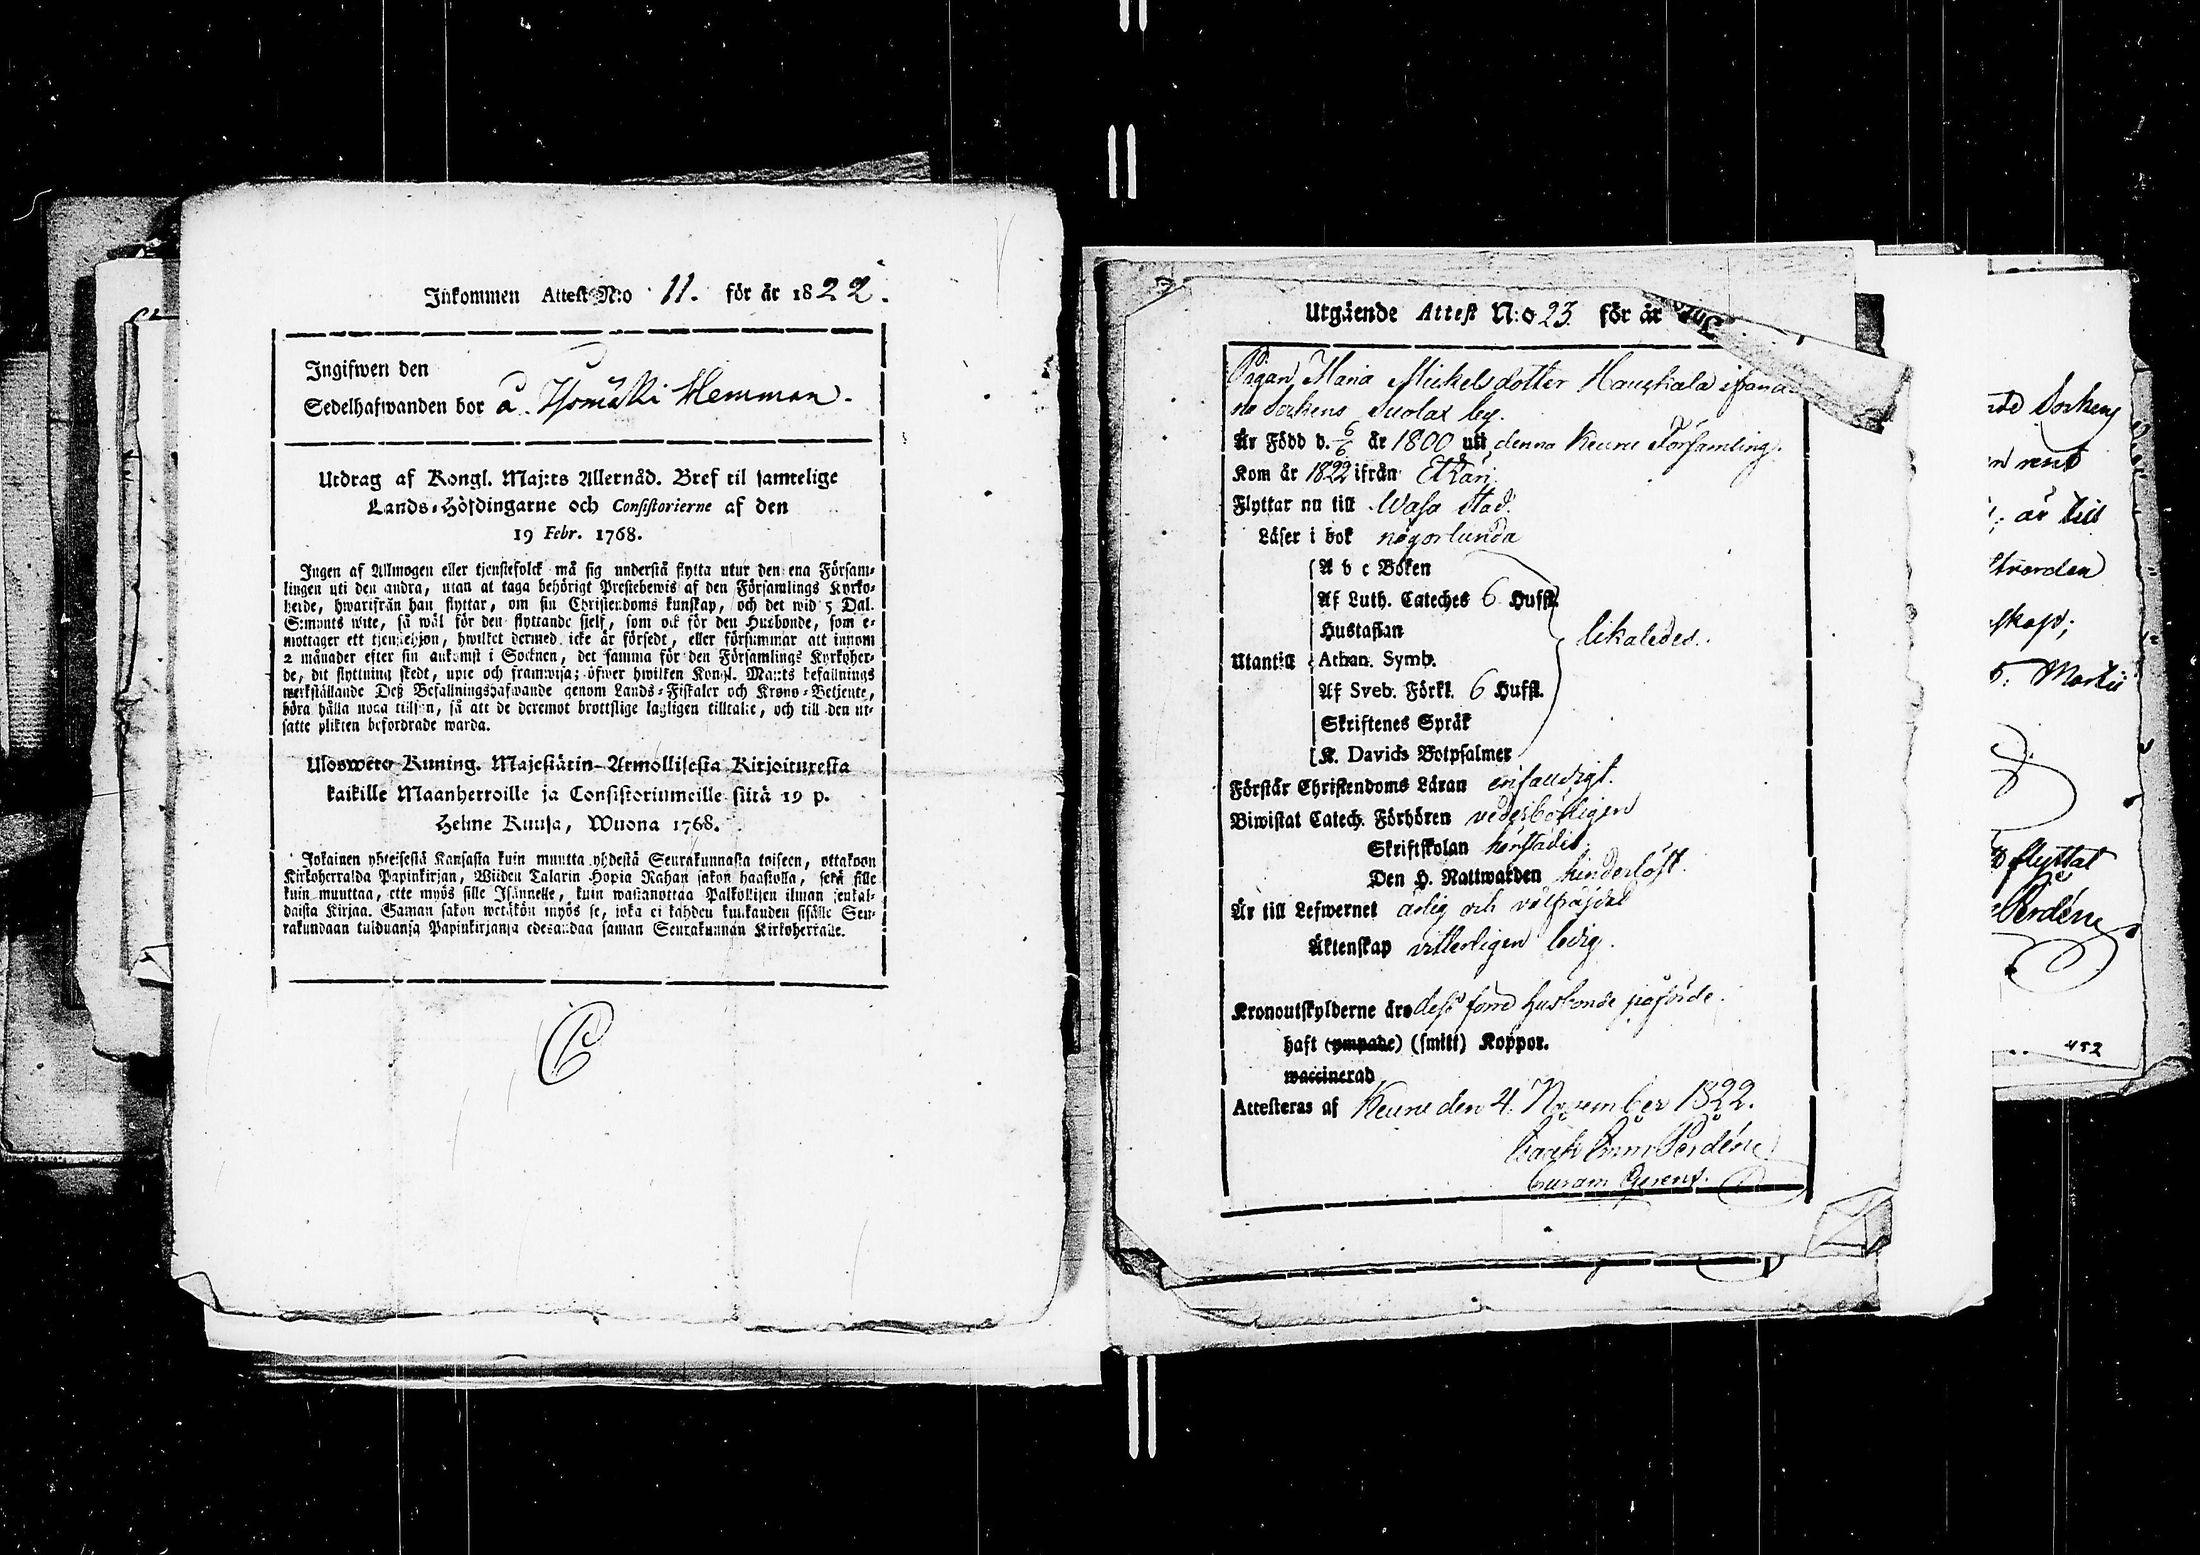 Inkommen Attest N:o 11. för år 1822.
Ingifwen den
Sedelhafwanden bor å Hemman.
Utdrag af Kongl. Maj:ts Allernåd. Bref til samtelige
Lands-Höfdingarne och Consistorierne af den
19 Febr. 1768.
Ingen af Allmogen eller tjenstefolck må sig understå flytta utur den ena Försam-
lingen uti den andra, utan at taga behörigt Prestebewis af den Församlings Kyrko-
herde, hwarifrån han flyttar, om sin Christendoms kunskap, och det wid 5 Dal.
S:mynts wite, så wäl för den flyttande sielf, som ock för den Husbonde, som e-
mottager ett tjenstehjon, hwilket dermed icke är försedt, eller försummar att innom
2 månader efter sin ankomst i Socknen, det samma för den Församlings Kyrkoher-
de, dit flyttning skedt, upte och framwisa; öfwer hwilken Kongl. Maj:ts befallnings
werkställande Deß Befallningshafwande genom Lands-Fiskaler och Krono-Betjente,
böra hålla noga tillsyn, så att de deremot brottslige lagligen tilltalte, och till den ut-
satte plikten befordrade warda.
Ulosweto Kuning. Majestätin Armollisesta Kirjoituxesta
kaikille Maanherroille ja Consistoriumeille siitä 19 p.
Helme Kuusa, Wuona 1768.
Jokainen yhteisestä Kansasta kuin muutta yhdestä Seurakunnasta toiseen, ottakoon
Kirkoherralda Papinkirjan, Wiiden Talarin Hopia Rahan sakon haastolla, sekä sille
kuin muuttaa, ette myös sille Isännelle, kuin wastanottaa Palkollisen ilman senkal-
daista Kirjaa. Saman sakon wetäkön myös se, joka ei kahden kuukauden sisälle Seu-
rakundaan tulduansa Papinkirjansa edesandaa saman Seurakunnan Kirkoherralle.
Utgående Attest N:o 23. för år
Pigan Maria Mickelsdotter Hauhala ifrån
Sockens Suolax by.
Är Född d. 6/6 år 1800 uti denna Keuru Församling.
Kom år 1822 ifrån Etzäri.
Flyttar nu till Wasa stad.
Läser i bok någorlunda
A b c Boken
Af Luth. Cateches 6 Hufst.
Hustaflan
Utantill Athan. Symb. likaledes.
Af Sveb. Förkl. 6 Hufst.
Skriftenes Språk
K. Davids Botpsalmer
Förstår Christendoms Läran enfaldigt.
Biwistat Catech. Förhören vederbörligen
Skriftskolan härstädes
Den H. Nattwarden hinderlöst.
Är till Lefwernet ärlig och välfräjdad
Äktenskap vitterligen ledig.
Kronoutskylderne äro dess förre husbonde påförde.
haft (ympade) (smitt) Koppor.
waccinerad
Attesteras af Keuru den 4. November 1822.
Isaak Perdén
Curam Gerens.
Sockens
är till
Martii
flyttat
Perdén
452